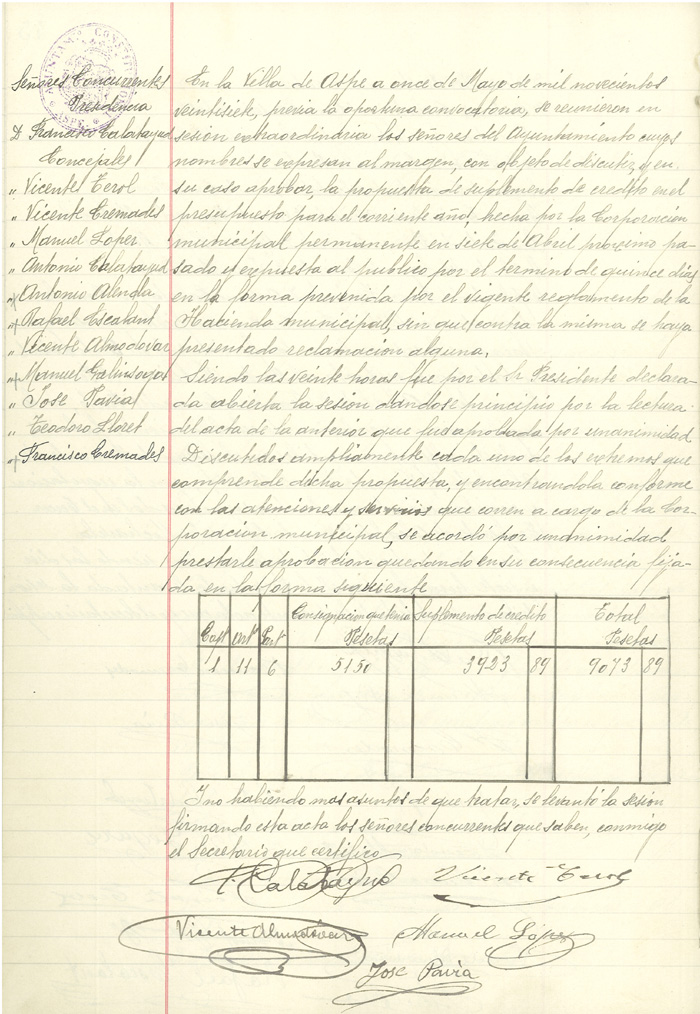 Señores Concurrentes
Presidencia
D. Francisco Calatayud
Concejales
" Vicente Cerol
" Vicente Cremades
" Manuel Lopez
" Antonio Calatayud
" Antonio Alenda
" Rafael Escalant
" Vicente Almodovar
" Manuel Galinsoga
" Jose Pavia
" Teodoro Lloret
" Francisco Cremades
En la Villa de Aspe a once de Mayo de mil novecientos
veintisiete, previa la oportuna convocatoria, se reunieron en
sesión extraordinaria los señores del Ayuntamiento cuyos
nombres se expresan al margen, con objeto de discutir, y en
su caso aprobar, la propuesta de suplemento de credito en el
presupuesto para el corriente año, hecha por la Corporación
municipal permanente en siete de Abril proximo pa-
sado y expuesta al publico por el termino de quince dias,
en la forma prevenida por el vigente reglamento de la
Hacienda municipal, sin que contra la misma se haya
presentado reclamacion alguna.
Siendo las veinte horas fue por el Sr Presidente declara-
da abierta la sesión dandose principio por la lectura
del acta de la anterior que fue aprobada por unanimidad
Discutidos ampliamente cada uno de los extremos que
comprende dicha propuesta, y encontrandola conforme
con las atenciones y servicios que corren a cargo de la Cor-
poracion municipal, se acordó por unanimidad
prestarle aprobacion quedando en su consecuencia fija-
da en la forma siguiente
Capº Artº Partª Consignacion que tenia Pesetas Suplemento de credito Pesetas Total Pesetas
1 11 6 5150 3923 89 9073 89
Y no habiendo mas asuntos de que tratar, se levantó la sesión
firmando esta acta los señores concurrentes que saben, conmigo
el Secretario que certifico
F. Calatayud Vicente Cerol
Vicente Almodóvar Manuel López
Jose Pavia